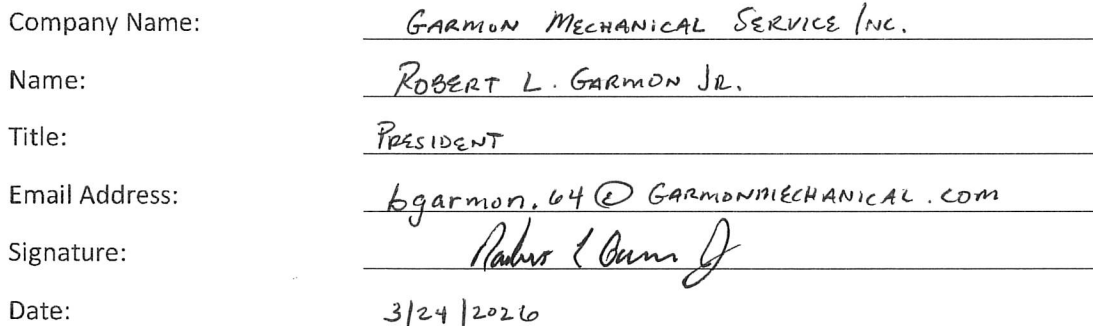 Company Name: GARMON MECHANICAL SERVICE INC.
Name: ROBERT L. GARMON JR.
Title: PRESIDENT
Email Address: bgarmon.64@GARMONMECHANICAL.com
Signature:
Date: 3/24/2026